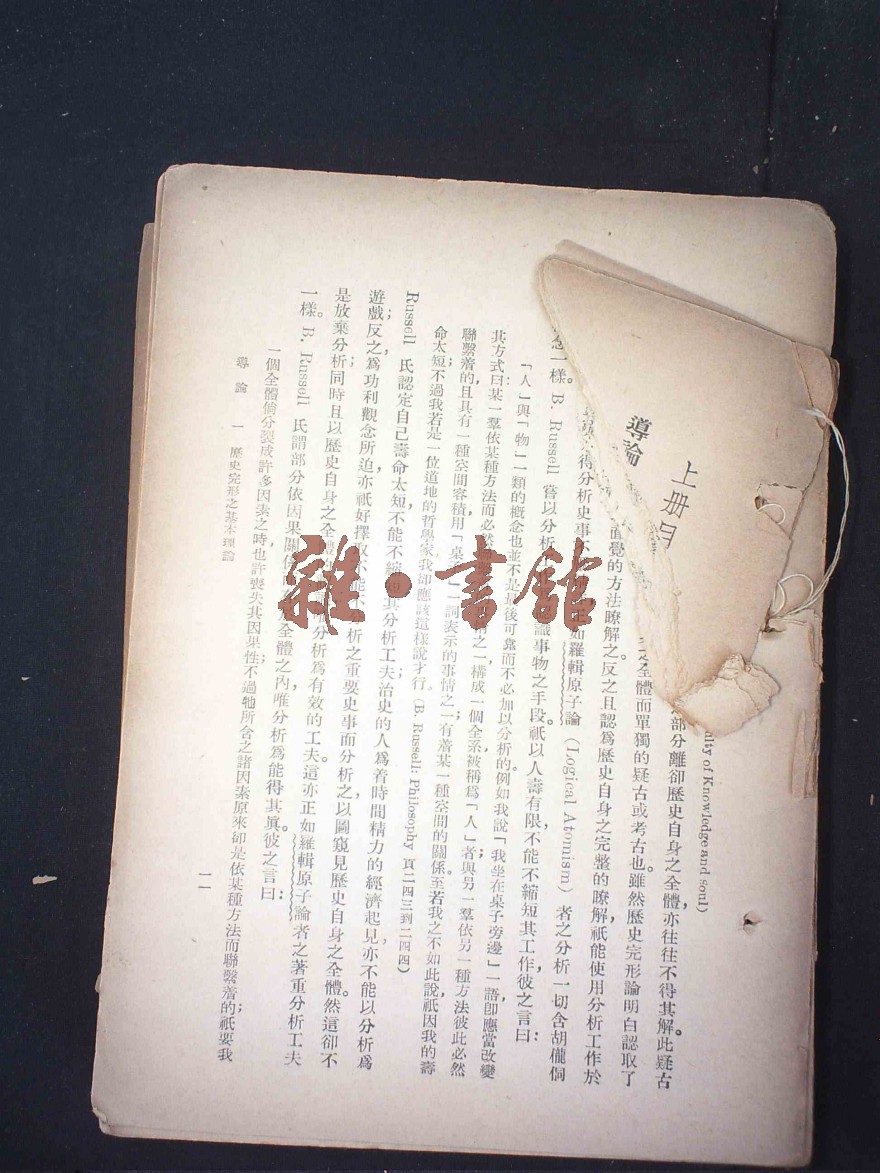 上册目
導論
alty of Knowledge and soul)
部分離卻歷史自身之全體亦往往不得其解此疑古
全體而單獨的疑古或考古也。雖然歷史完形論明白認取了
面覺的方法瞭解之。反之且認爲歷史自身之完整的瞭解，祇能使用分析工作於
得分析史事 正如羅輯原子論（Logical Atomism）者之分析一切含胡儱侗
念一樣。B. Russell 嘗以分析 識事物之手段祇以人壽有限，不能不縮短其工作，彼之言曰：
「人」與「物」一類的概念也並不是最後可靠而不必加以分析的例如我說「我坐在桌子旁邊」一語卽應當改變
其方式曰：某一羣依某種方法而必然 之一，構成一個全系被稱爲「人」者與另一羣依另一種方法彼此必然
聯繫着的，且具有一種空間容積用「桌子」一詞表示的事情之一；有着某一種空間的關係。至若我之不如此說，祇因我的壽
命太短；不過我若是一位道地的哲學家，我卻應該這樣說才行。（B. Russell: Philosophy 頁二四三到二四四）
Russell 氏認定自己壽命太短不能不縮短其分析工夫；治史的人爲着時間精力的經濟起見，亦不能以分析爲
遊戲；反之爲功利觀念所迫，亦祇好擇取不能 分析之重要史事而分析之，以圖窺見歷史自身之全體。然這卻不
是放棄分析；同時且以歷史自身之全體 唯分析爲有效的工夫。這亦正如羅輯原子論者之著重分析工夫
一樣。B. Russell 氏謂部分依因果關係而 全體之內，唯分析爲能得其眞。彼之言曰：
一個全體倘分裂成許多因素之時，也許喪失其因果性；不過牠所含之諸因素原來卻是依某種方法而聯繫着的；祇要我
導論 一 歷史完形之基本理論
一一
雜·書館